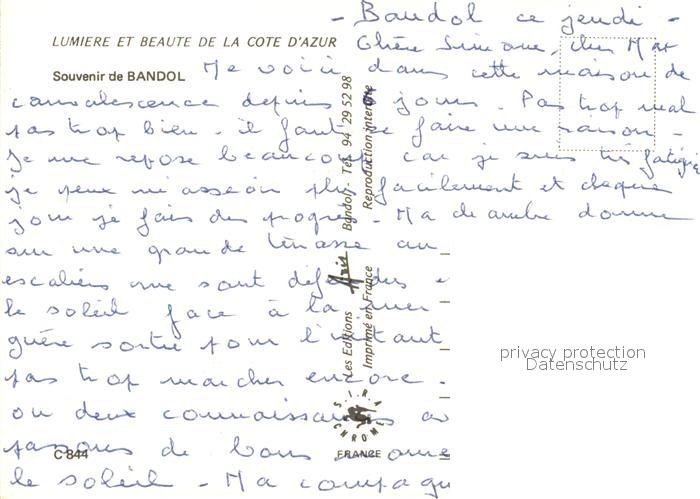 - Bandol ce jeudi -
LUMIERE ET BEAUTE DE LA COTE D'AZUR
Chère Simone, cher Max
Souvenir de BANDOL
Me voici dans cette maison de
convalescence depuis jours. Pas trop mal
pas trop bien. il faut se faire une raison.
Je me repose beaucoup car je suis très fatiguée
je peux m'asseoir plus facilement et chaque
jour je fais des progrès. Ma chambre donne
sur une grande terrasse au
escaliers me sont défendus e
le soleil face à la mer
guère sortir pour l'instant
pas trop marcher encore.
ou deux connaissances av
passons de bons mome
le soleil. Ma compagn
Les Editions Aris Bandol - Tél. 94 29 52 98
Imprimé en France Reproduction interdite
S.I.R.A. CHROME
C 844
FRANCE
privacy protection
Datenschutz